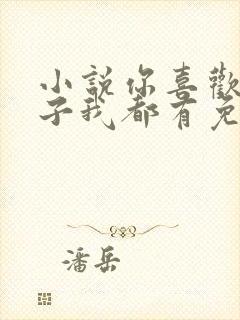 小說你喜歡
子我都有免
潘岳